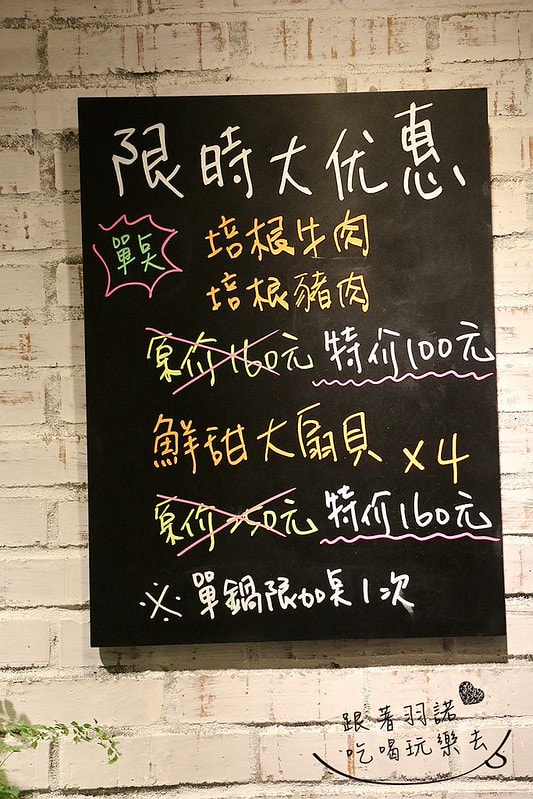 限時大优惠
單点
培根牛肉
培根豬肉
原价160元 特价100元
鮮甜大扇貝 x4
原价250元 特价160元
※單鍋限加点1次
跟著羽諾
吃喝玩樂去